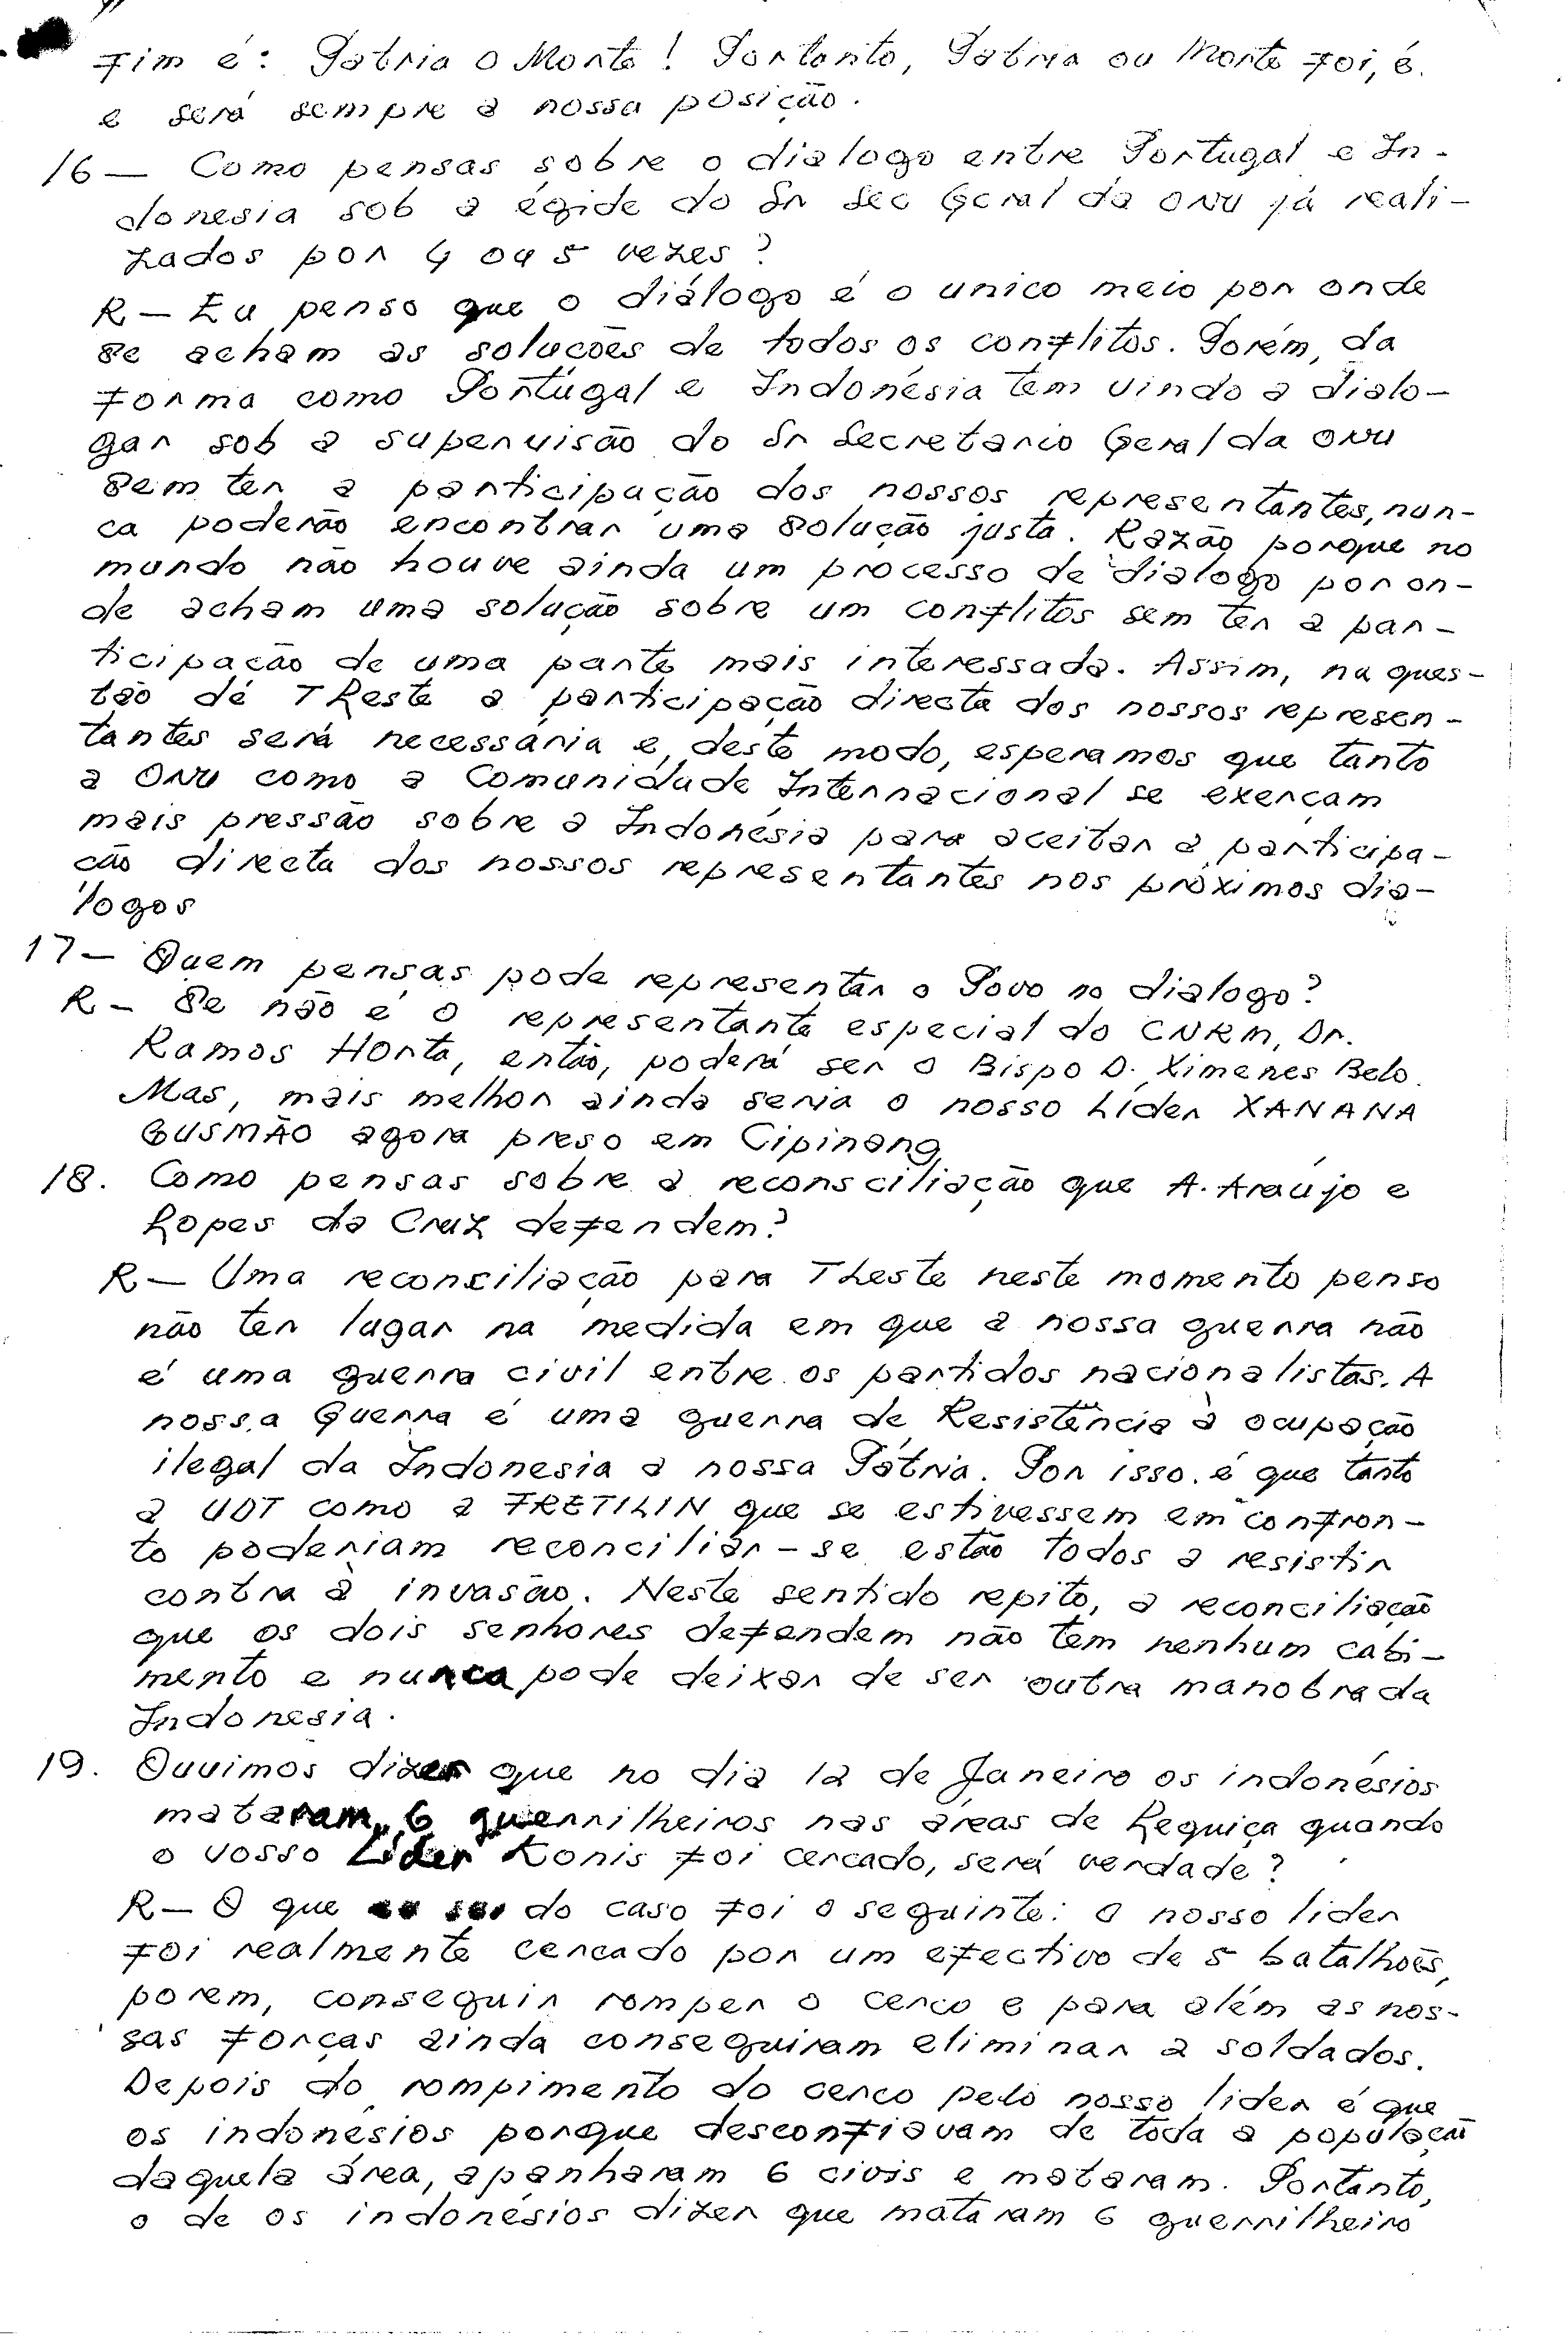 Fim é: Pátria o Morte! Portanto, Pátria ou Morte foi, é.
e será sempre a nossa posição.
16 — Como pensas sobre o dialogo entre Portugal e In-
donesia sob a égide do Sr Sec Geral da ONU já reali-
zados por 4 ou 5 vezes?
R — Eu penso que o diálogo é o unico meio por onde
se acham as soluções de todos os conflitos. Porém, da
forma como Portugal e Indonésia tem vindo a dialo-
gar sob a supervisão do Sr Secretario Geral da ONU
sem ter a participação dos nossos representantes, nun-
ca poderão encontrar uma solução justa. Razão porque no
mundo não houve ainda um processo de dialogo por on-
de acham uma solução sobre um conflitos sem ter a par-
ticipação de uma parte mais interessada. Assim, na ques-
tão de TLeste a participação directa dos nossos represen-
tantes será necessária e, deste modo, esperamos que tanto
a ONU como a Comunidade Internacional se exerçam
mais pressão sobre a Indonésia para aceitar a participa-
ção directa dos nossos representantes nos próximos dia-
logos
17 — Quem pensas pode representar o Povo no dialogo?
R — Se não é o representante especial do CNRM, Dr.
Ramos Horta, então, poderá ser o Bispo D. Ximenes Belo.
Mas, mais melhor ainda seria o nosso Lider XANANA
GUSMÃO agora preso em Cipinang
18. Como pensas sobre a reconsciliação que A. Araújo e
Lopes da Cruz defendem?
R — Uma reconsiliação para TLeste neste momento penso
não ter lugar na medida em que a nossa guerra não
é uma guerra civil entre os partidos nacionalistas. A
nossa Guerra é uma guerra de Resistência à ocupação
ilegal da Indonesia a nossa Pátria. Por isso é que tanto
a UDT como a FRETILIN que se estivessem em confron-
to poderiam reconciliar-se estão todos a resistir
contra à invasão. Neste sentido repito, a reconciliação
que os dois senhores defendem não tem nenhum cabi-
mento e nunca pode deixar de ser outra manobra da
Indonesia.
19. Ouvimos dizer que no dia 12 de Janeiro os indonésios
mataram 6 guerrilheiros nas áreas de Lequiça quando
o vosso Líder Konis foi cercado, será verdade?
R — O que eu sei do caso foi o seguinte: o nosso lider
foi realmente cercado por um efectivo de 5 batalhões,
porem, conseguir romper o cerco e para além as nos-
sas forças ainda conseguiram eliminar 2 soldados.
Depois do rompimento do cerco pelo nosso lider é que
os indonésios porque desconfiavam de toda a população
daquela área, apanharam 6 civis e mataram. Portanto,
o de os indonésios dizer que mataram 6 guerrilheiro